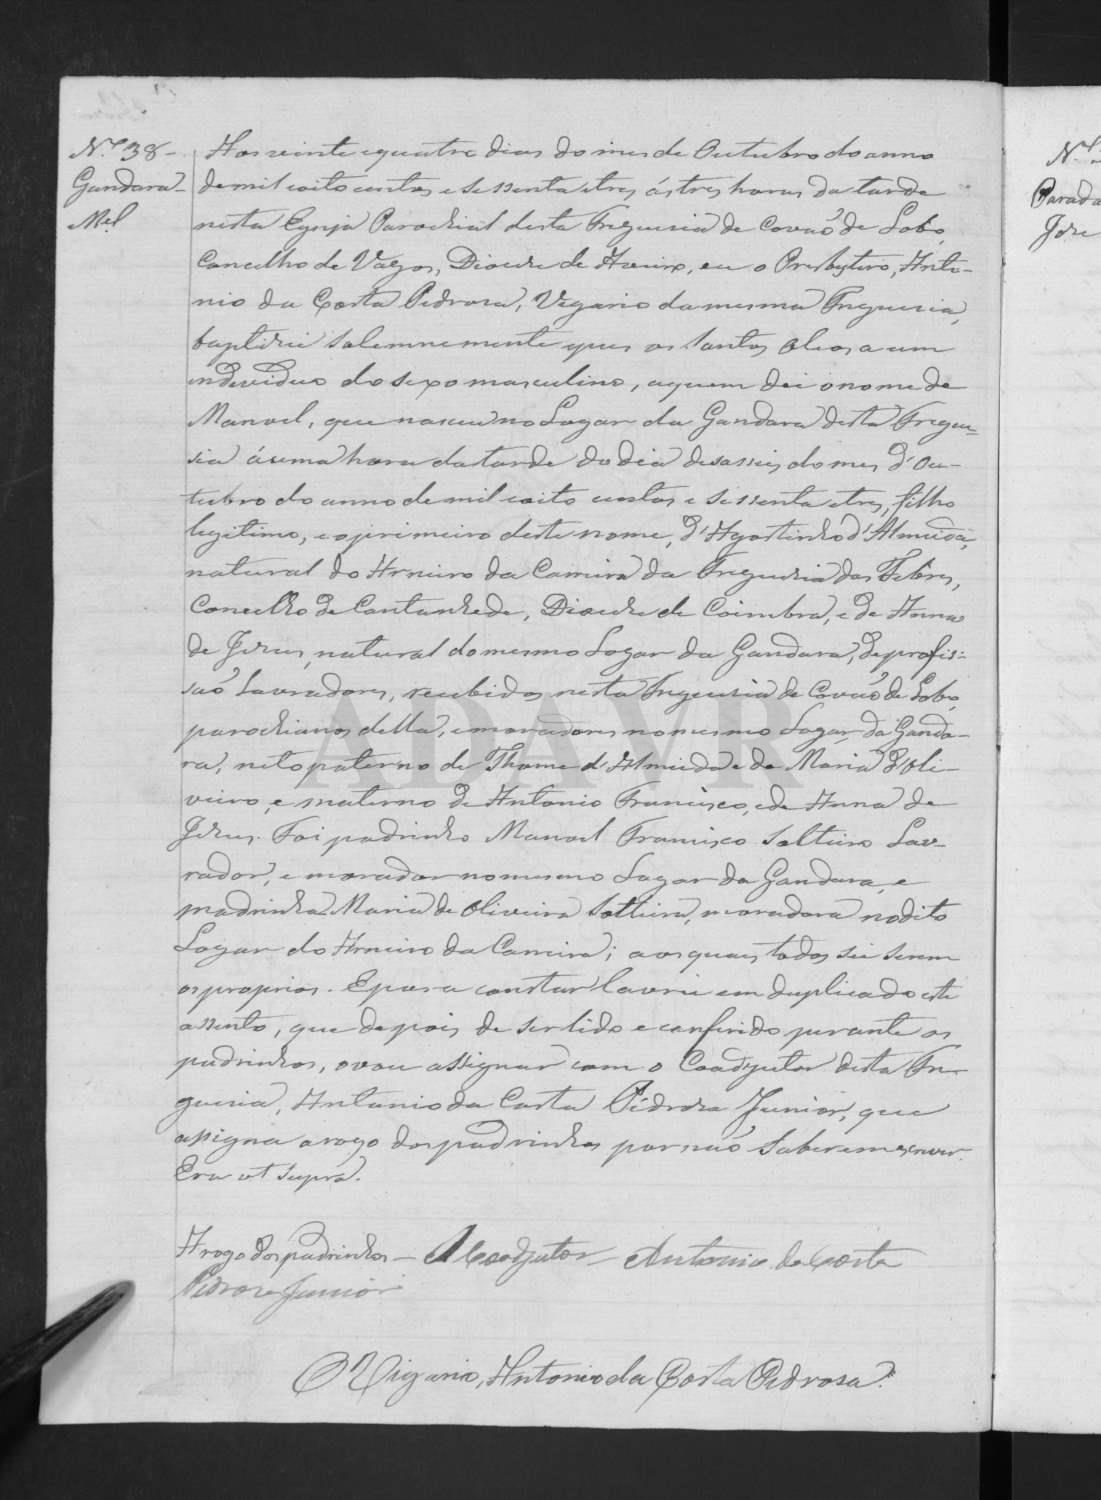 N.º 38-
Gandara-
M.el
Aos vinte equatro dias do mes de Outubro do anno
de mil eoito centos e sessenta etres, ás tres horas da tarde
nesta Egreja Parochial desta Freguesia de Covaõ de Lobo,
Concelho de Vagos, Diocese de Aveiro, eu o Presbytero, Anto-
nio da Costa Pedrosa, Vigario da mesma Freguesia,
baptizei Solemnemente epus os Santos Oleos a um
individuo do sexo masculino, aquem dei o nome de
Manoel, que nasceu no Lugar da Gandara desta Fregue=
sia áuma hora da tarde do dia desasseis do mes d'Ou-
tubro do anno de mil eoito centos e sessenta etres, filho
legitimo, e oprimeiro deste nome, d'Agostinho d'Almeida,
natural do Arneiro da Cameira da Freguesia das Febres,
Concelho de Cantanhede, Diocese de Coimbra, e de Anna
de Jesus, natural do mesmo Logar da Gandara, de profis=
saõ Lavradores, recebidos nesta Freguesia de Covaõ de Lobo,
parochianos della, e moradores no mesmo Logar da Ganda-
ra, neto paterno de Thome d'Almeida e de Maria d'Oli-
veira, e materno de Antonio Francisco, e de Anna de
Jesus. Foi padrinho Manoel Francisco Solteiro Lav-
rador, e morador no mesmo Lugar da Gandara, e
madrinha Maria de Oliveira Solteira, moradora no dito
Logar do Arneiro da Cameira; aos quaes todos sei serem
os proprios. E para constar lavrei em duplicado este
assento, que depois de ser lido e conferido perante os
padrinhos, o vou assignar com o Coadjutor desta Fre-
guesia, Antonio da Costa Pedrosa Junior, que
assigna a rogo dos padrinhos por naõ Saberem escrever.
Era ut supra.
A rogo dos padrinhos - O Coadjutor Antonio da Costa
Pedrosa Junior
O Vigario, Antonio da Costa Pedrosa.
ADAVR
N.º
Parada
Jose